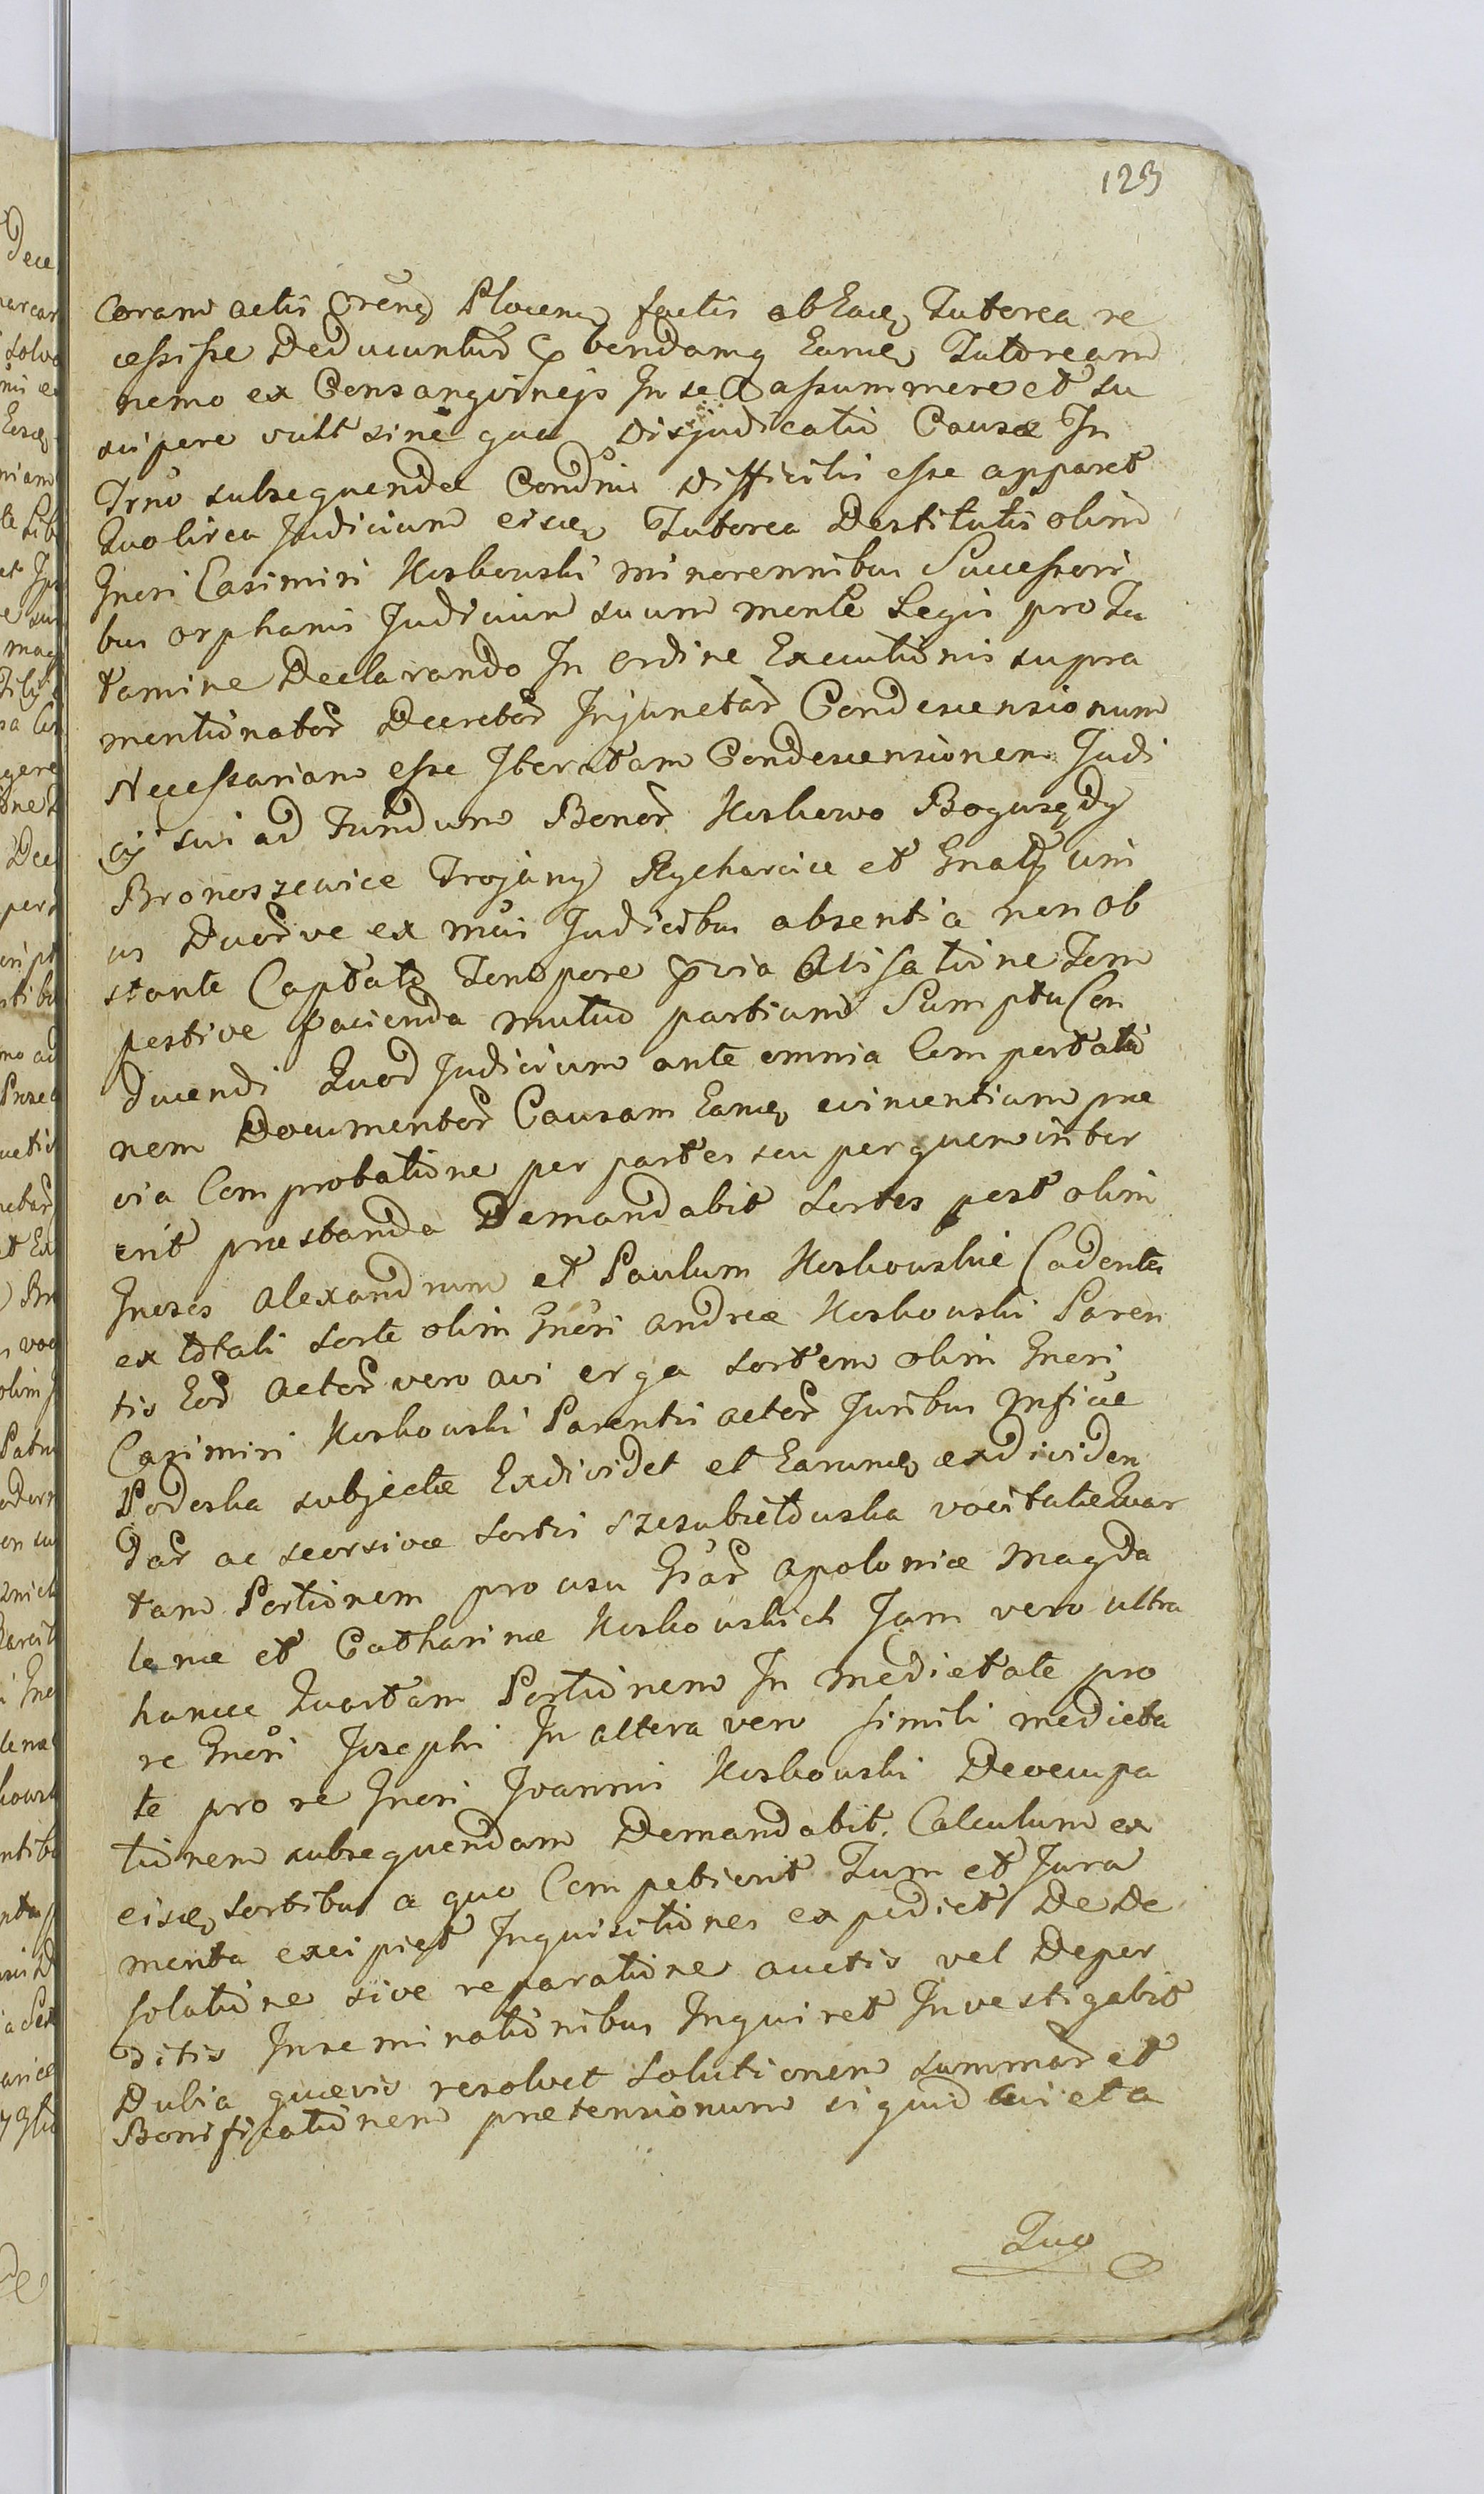 123
Coram actis Cren Plocen factis ab Eade Tutorea re
cessisse Deducuntur bendamq Eande Tutoream
nemo ex Consangvineis In se assummere et su
scipere vult sine qua Disjudicatio Causæ In
Trno subsequenda Condnis Difficilis esse apparet
Quo circa Judicium eisde Tutorea Destitutis olim
Gnosi Casimiri Koskowski minorennibus Successori
bus orphanis Judicium suum mente Legis pro Tu
tamine Declarando In ordine Executionis supra
mentionator Decretor Injunctar Condescensionum
Necessariam esse Iteratam Condescensionem Judi
cij sui ad Fundum Bonor Koskowo Bogusędy
Bronoszewice Trojany Rycharcice et Gnaty uni
us Duor ve ex nris Judicibus absentia non ob
stante Captato Tempore pvia Avisatione Tem
pestive facienda mutuo partium Sumptu Con
ducendi Quod Judicium ante omnia Comportatio
nem Documentor Causam Eande evincentium præ
via Comprobatione per partes seu per quem inter
erit præstanda Demandabit Sortes post olim
Gnosos Alexandrum et Paulum Koskowskie Cadentes
ex totali sorte olim Gnosi Andreæ Koskowski Paren
tis Eor Actor vero avi erga sortem olim Gnosi
Casimiri Koskowski Parentis Actor Juribus Mficæ
Podeska subjectæ Exdividet et Earunde exdividen
dar ac seorsivæ sortis Szesubietowska vocitatæ Quar
tam Portionem pro usu Gsar Apoloniæ Magda
lenæ et Catharinæ Koskowskich Jam vero ultra
hancce Quartam Portionem In medietate pro
re Gnosi Josephi In altera vero simili medieta
te pro re Gnosi Joannis Koskowski Deoccupa
tionem subsequendam Demandabit. Calculum ex
eisde sortibus a quo Competierit Tum et Jura
menta excipiet Inquisitiones expediet De De
solatione sive reparatione auctis vel Deper
ditis Inseminationibus Inquiret Investigabit
Dubia quævis resolvet Solutionem summar et
Bonificationem prætensionum siquid cui et a
Quo